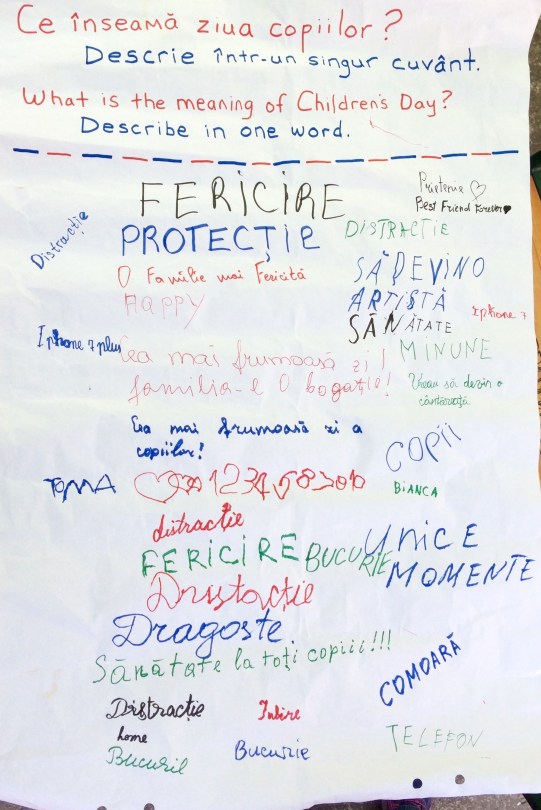 Ce înseamă ziua copiilor?
Descrie într-un singur cuvânt.
What is the meaning of Children's Day?
Describe in one word.
FERICIRE
Prietenie
Best Friend Forever
Distracție
PROTECȚIE
DISTRACTIE
O Familie mai Fericită
SĂ DEVIN O
ARTISTĂ
HAPPY
Iphone 7
SĂNĂTATE
Iphone 7 plus
Cea mai frumoasă zi!
familia-e O bogație!
MINUNE
Vreau să devin o
cântăreață
Cea mai frumoasă zi a
copiilor!
COPII
TOMA
BIANCA
distractie
FERICIRE
BUCURIE
UNICE
MOMENTE
Distracție
Dragoste.
Sănătate la toți copiii!!!
COMOARĂ
Distracție
Iubire
home
Bucuril
Bucurie
TELEFON